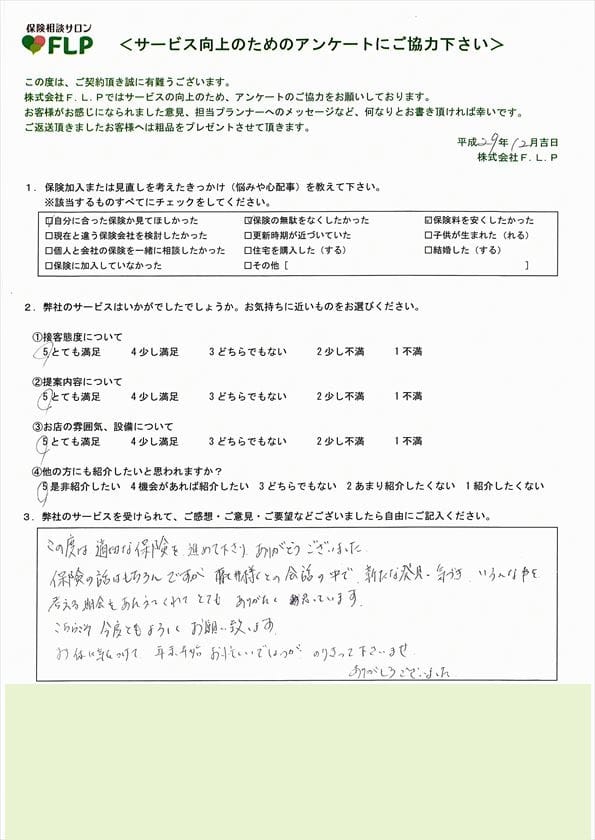 保険相談サロン
FLP
＜サービス向上のためのアンケートにご協力下さい＞
この度は、ご契約頂き誠に有難うございます。
株式会社Ｆ.Ｌ.Ｐではサービスの向上のため、アンケートのご協力をお願いしております。
お客様がお感じになられました意見、担当プランナーへのメッセージなど、何なりとお書き頂ければ幸いです。
ご返送頂きましたお客様へは粗品をプレゼントさせて頂きます。
平成29年12月吉日
株式会社Ｆ.Ｌ.Ｐ
１．保険加入または見直しを考えたきっかけ（悩みや心配事）を教えて下さい。
※該当するものすべてにチェックをしてください。
☑自分に合った保険か見てほしかった ☑保険の無駄をなくしたかった ☑保険料を安くしたかった
□現在と違う保険会社を検討したかった □更新時期が近づいていた □子供が生まれた（れる）
□個人と会社の保険を一緒に相談したかった □住宅を購入した（する） □結婚した（する）
□保険に加入していなかった □その他［ ］
２．弊社のサービスはいかがでしたでしょうか。お気持ちに近いものをお選びください。
①接客態度について
5とても満足 4少し満足 3どちらでもない 2少し不満 1不満
②提案内容について
5とても満足 4少し満足 3どちらでもない 2少し不満 1不満
③お店の雰囲気、設備について
5とても満足 4少し満足 3どちらでもない 2少し不満 1不満
④他の方にも紹介したいと思われますか？
5是非紹介したい 4機会があれば紹介したい 3どちらでもない 2あまり紹介したくない 1紹介したくない
３．弊社のサービスを受けられて、ご感想・ご意見・ご要望などございましたら自由にご記入ください。
この度は 適切な保険を 進めて下さり ありがとうございました
保険の話はもちろんですが 様との会話の中で 新たな発見、気づき いろんな事を
考える機会をあたえてくれて とても ありがたく 思っています
こちらこそ 今度ともよろしく お願い致します
お体に気をつけて 年末年始 お忙しいでしょうが のりきって下さいませ
ありがとうございました